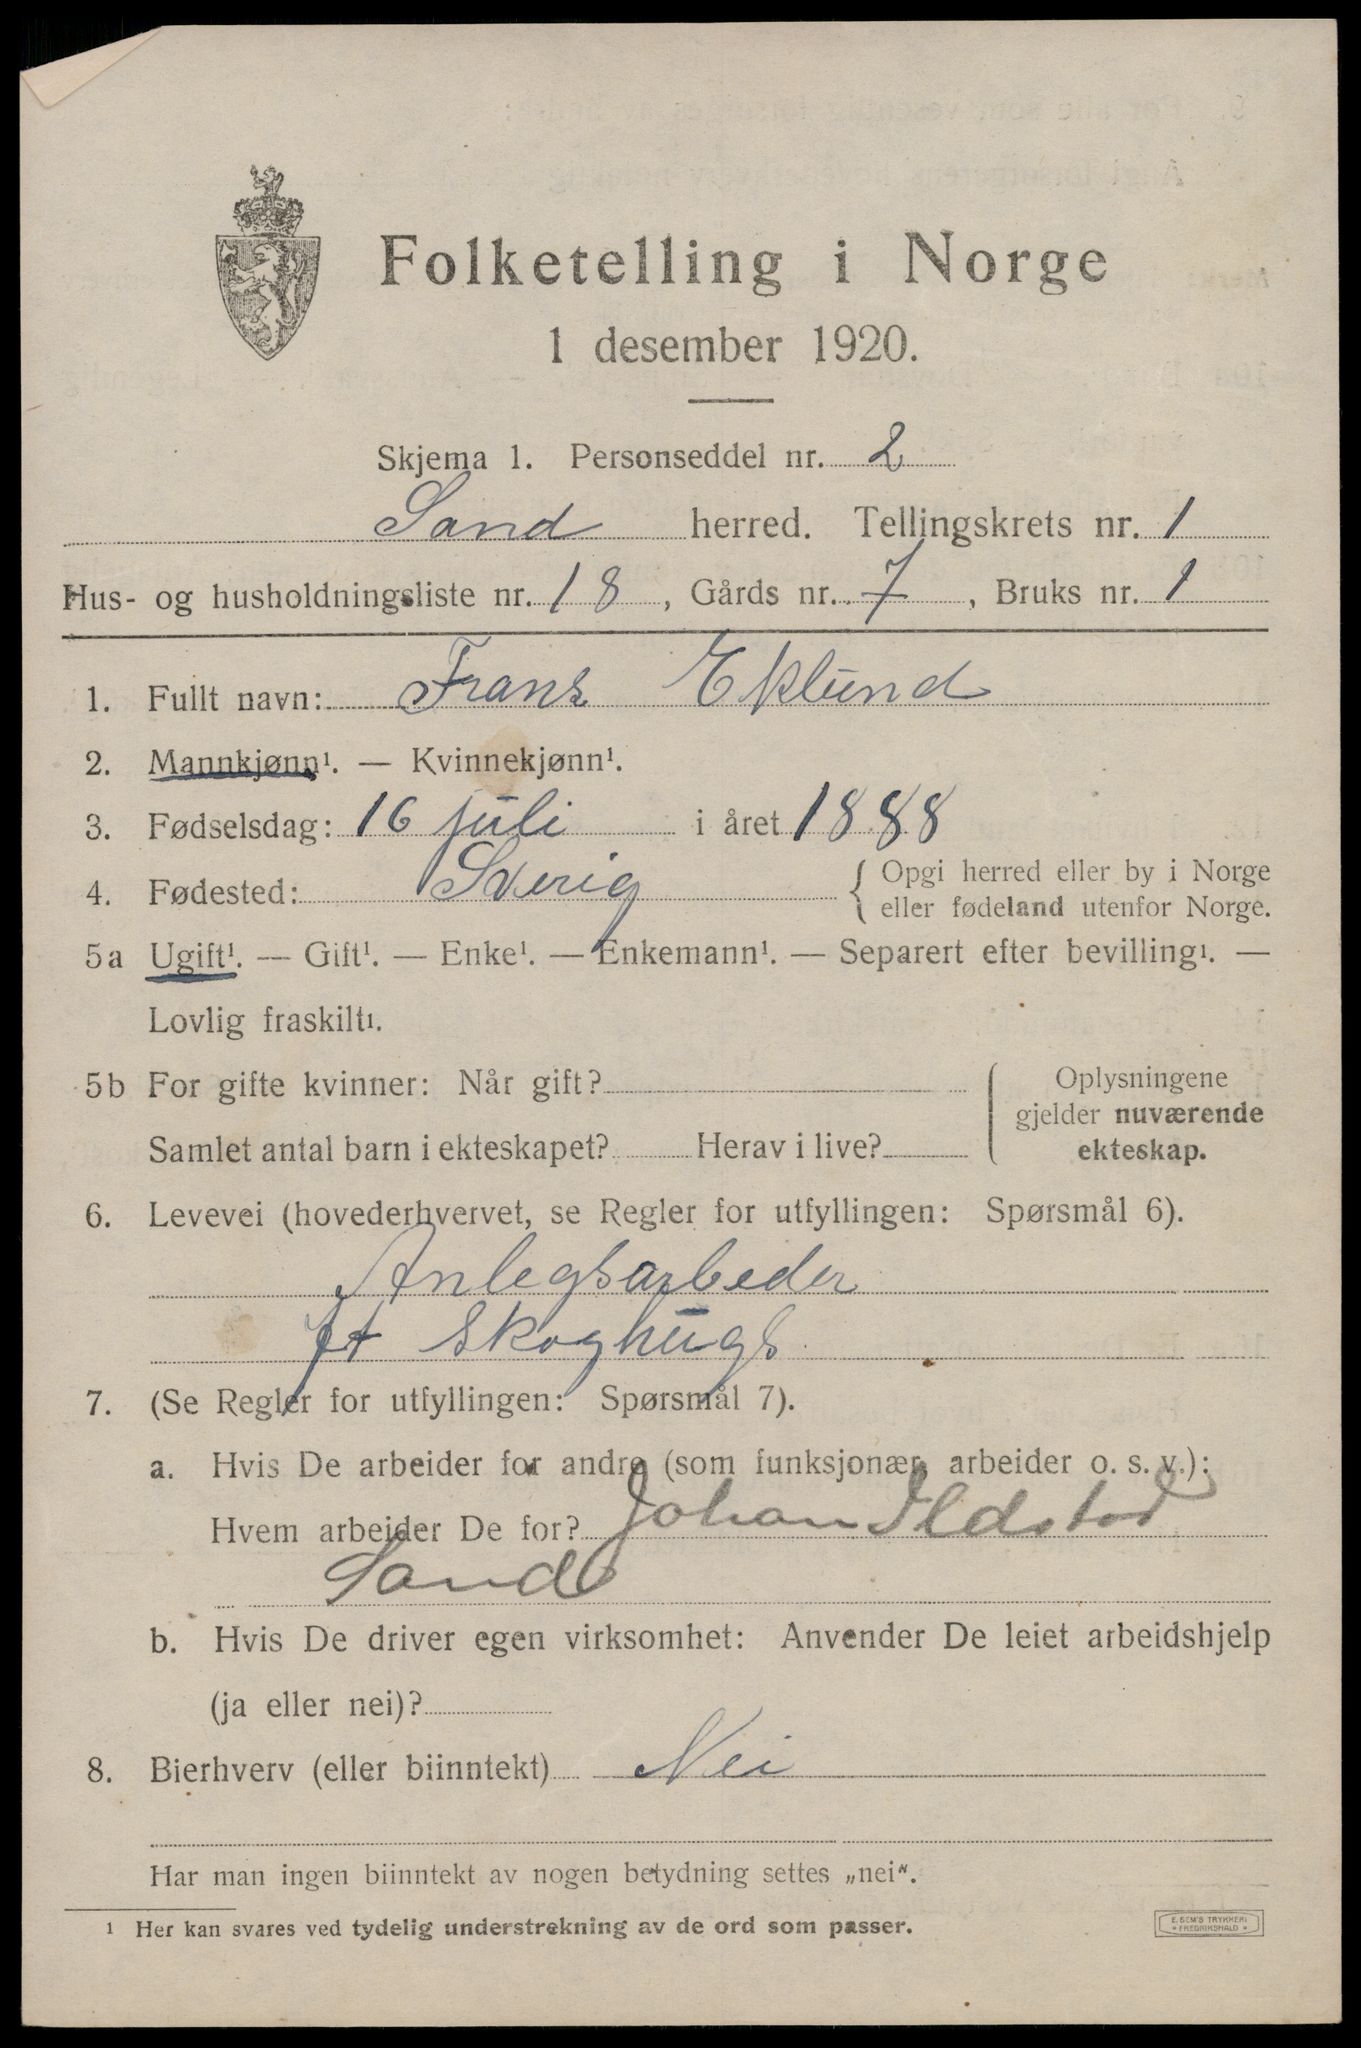 Folketelling i Norge
1 desember 1920.
Skjema 1. Personseddel nr. 2
Sand herred. Tellingskrets nr. 1
Hus- og husholdningsliste nr. 18, Gårds nr. 7, Bruks nr. 1
1. Fullt navn: Frans Eklund
2. Mannkjønn¹. — Kvinnekjønn¹.
3. Fødselsdag: 16 juli i året 1888
4. Fødested: Sverig { Opgi herred eller by i Norge
eller fødeland utenfor Norge.
5a Ugift¹. — Gift¹. — Enke¹. — Enkemann¹. — Separert efter bevilling¹. —
Lovlig fraskilt¹.
5b For gifte kvinner: Når gift?
Samlet antal barn i ekteskapet? Herav i live?
Oplysningene
gjelder nuværende
ekteskap.
6. Levevei (hovederhvervet, se Regler for utfyllingen: Spørsmål 6).
Anlegsarbeder
Skoghugs
7. (Se Regler for utfyllingen: Spørsmål 7).
a. Hvis De arbeider for andre (som funksjonær, arbeider o. s. v.):
Hvem arbeider De for? Johan Ildstad
Sand
b. Hvis De driver egen virksomhet: Anvender De leiet arbeidshjelp
(ja eller nei)?
8. Bierhverv (eller biinntekt) Nei
Har man ingen biinntekt av nogen betydning settes „nei".
¹ Her kan svares ved tydelig understrekning av de ord som passer.
E. SEM'S TRYKKERI
FREDRIKSHALD